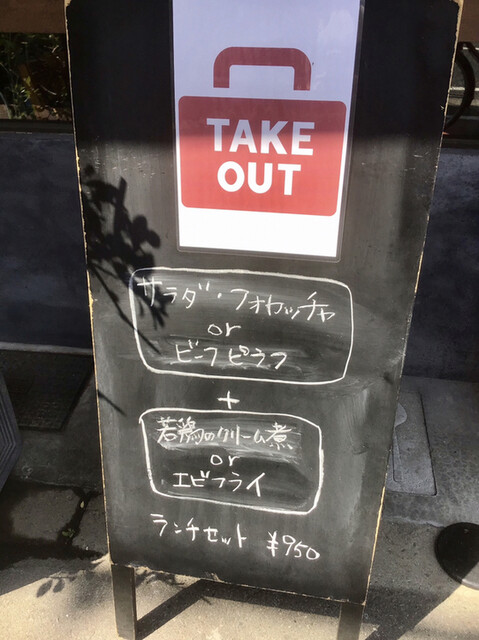 TAKE
OUT
サラダ・フォカッチャ
or
ビーフピラフ
+
若鶏のクリーム煮
or
エビフライ
ランチセット ¥950